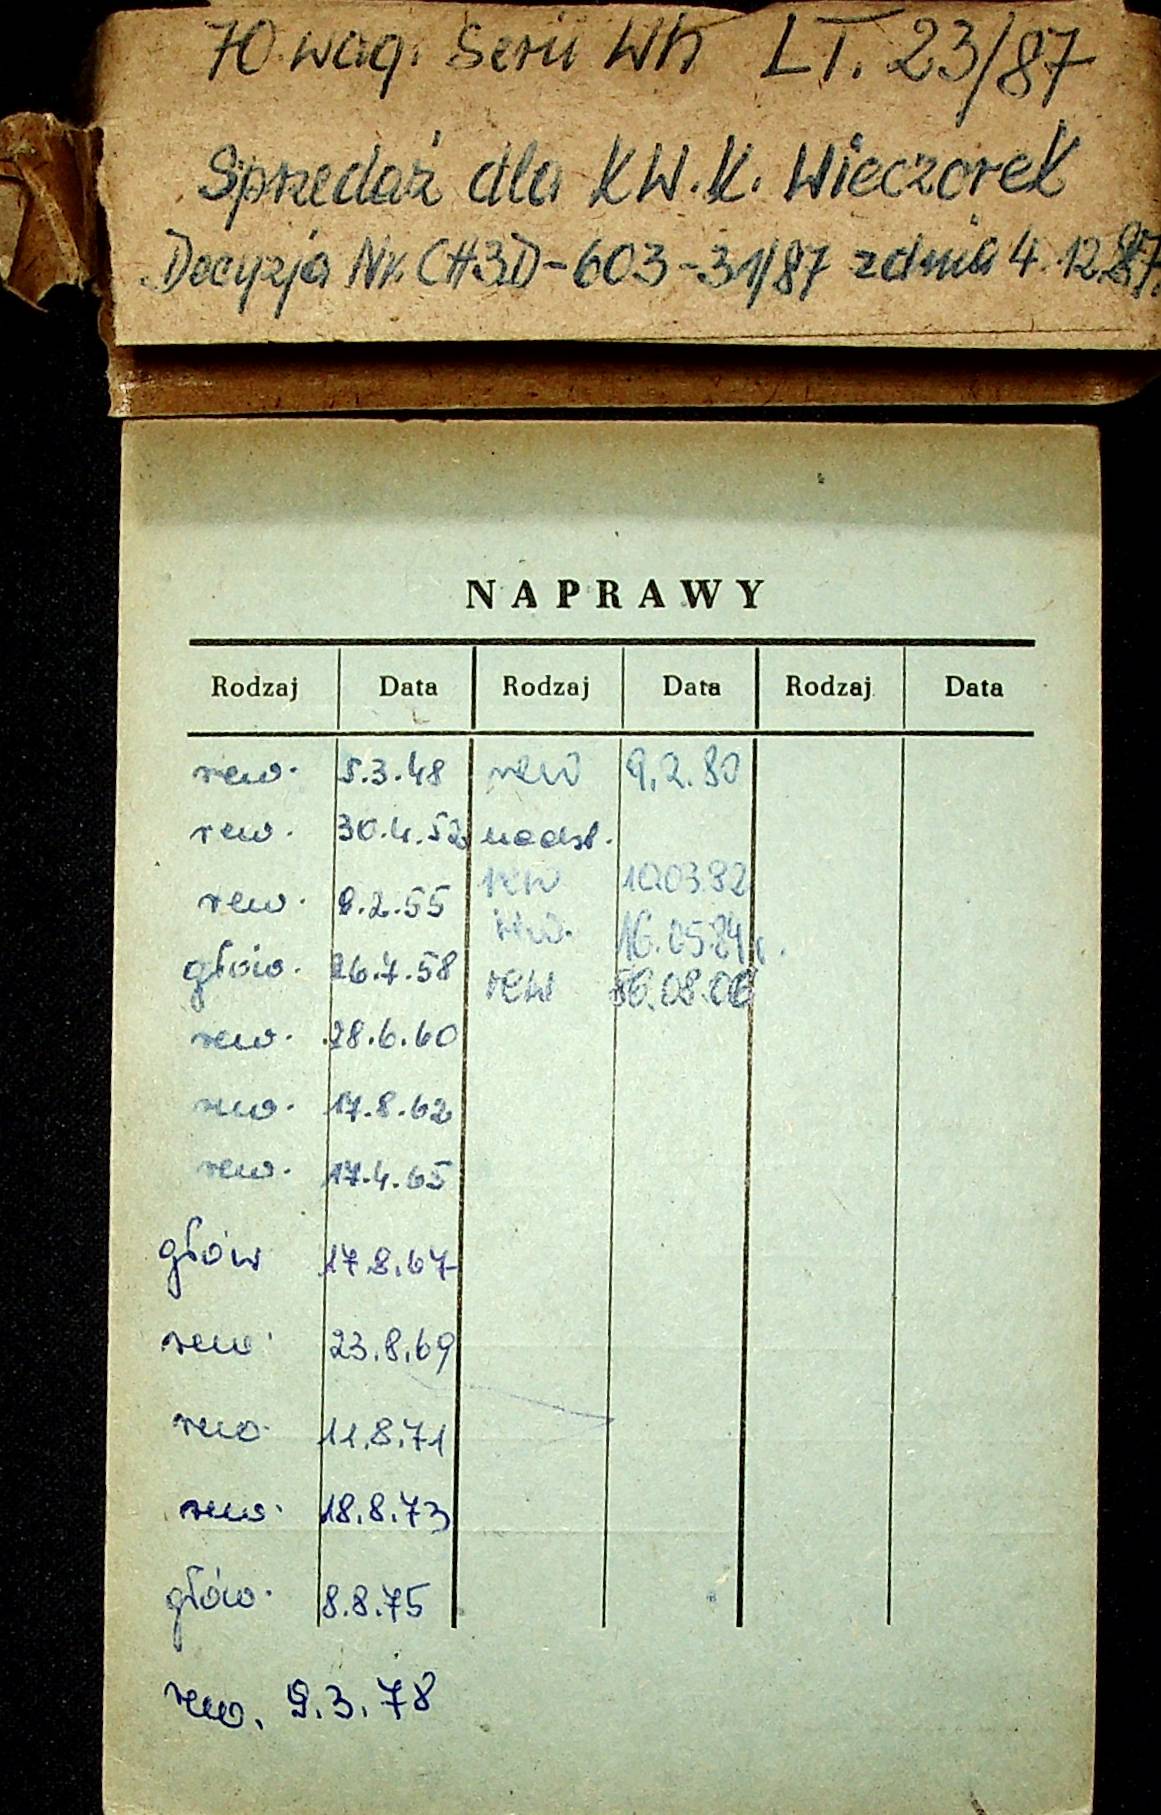 70 wag. Serii Wh LT. 23/87
Sprzedaż dla KW.K. Wieczorek
Decyzja Nr CH3D-603-31/87 z dnia 4.12.87.
NAPRAWY
Rodzaj Data Rodzaj Data Rodzaj Data
rew. 5.3.48 rew 9.2.80
rew. 30.4.52 nadst.
rew 10.03.82
rew. 9.2.55
rew. 16.05.84 r.
głów. 26.7.58
rew 86.08.06
rew. 28.6.60
rew. 17.8.62
rew. 17.4.65
głów 17.8.67
rew. 23.8.69
rew. 11.8.71
rew. 18.8.73
głów. 8.8.75
rew. 9.3.78